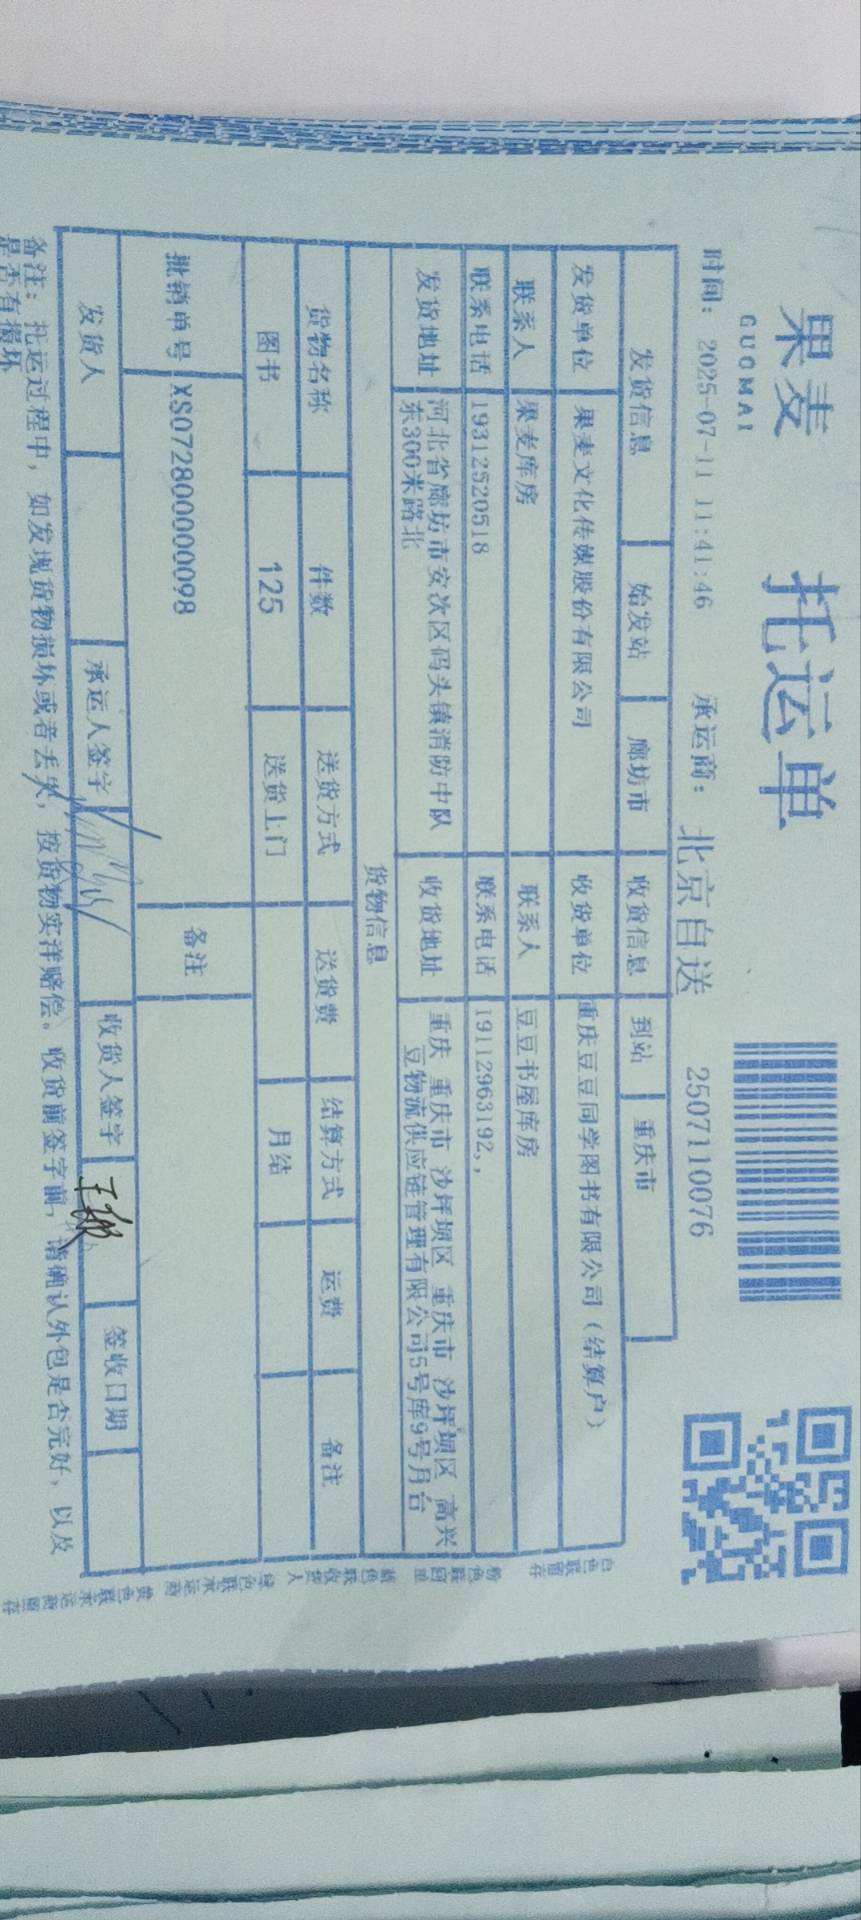 果麦
GUOMAI
托运单
时间：2025-07-11 11:41:46 承运商：北京自送 2507110076
发货信息 始发站 廊坊市 收货信息 到站 重庆市
发货单位 果麦文化传媒股份有限公司 收货单位 重庆豆豆同学图书有限公司（结算户）
联系人 果麦库房 联系人 豆豆书屋库房
联系电话 19312520518 联系电话 19112963192,,
发货地址 河北省廊坊市安次区码头镇消防中队
东300米路北
收货地址 重庆 重庆市 沙坪坝区 重庆市 沙坪坝区 高兴
豆物流供应链管理有限公司5号库9号月台
货物信息
货物名称 件数 送货方式 送货费 结算方式 运费 备注
图书 125 送货上门 月结
批销单号 XS072800000098 备注
发货人 承运人签字 收货人签字 签收日期
备注：托运过程中，如发现货物损坏或者丢失，按货物实洋赔偿。收货前签字前，请确认外包是否完好，以及
是否有损坏
白色联留存
粉色联回重
蓝色联收货人
绿色联承运商
黄色联承运商留存